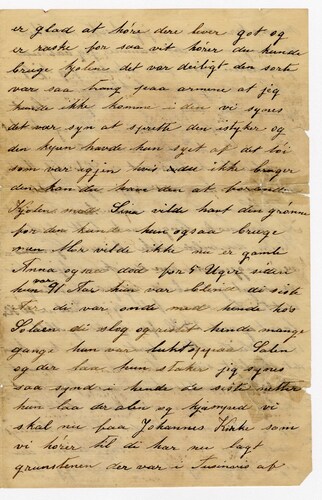 er glad at höre dere lever got og
er raske for saa vit hörer du kunde
bruge kjolen det var deiligt den sorte
var saa trang paa armene at jeg
kunde ikke komme i den vi synes
det var syn at sprette den istyker og
den kjan havde hun syet af det töi
som var igjen hvis du ikke bruger
den kan du
Kjolen med. Lina vilde havt den grönne
for den kunde hun ogsaa bruge
men Mor vilde ikke nu er gamle
Anna ogsaa död for 5 Uger siden
hun var 91 Aar hun var blind de siste
Aar de var onde med hende hos
de slog og ristet hende mange
gange hun var lukket Salen
og der laa hun staker jeg synes
saa synd i hende de siste netter
hun laa der alen og kjæmped vi
skal nu faa Johannes Kirke som
vi hörer til di har nu lagt
grunstenen der var i Tusinvis af